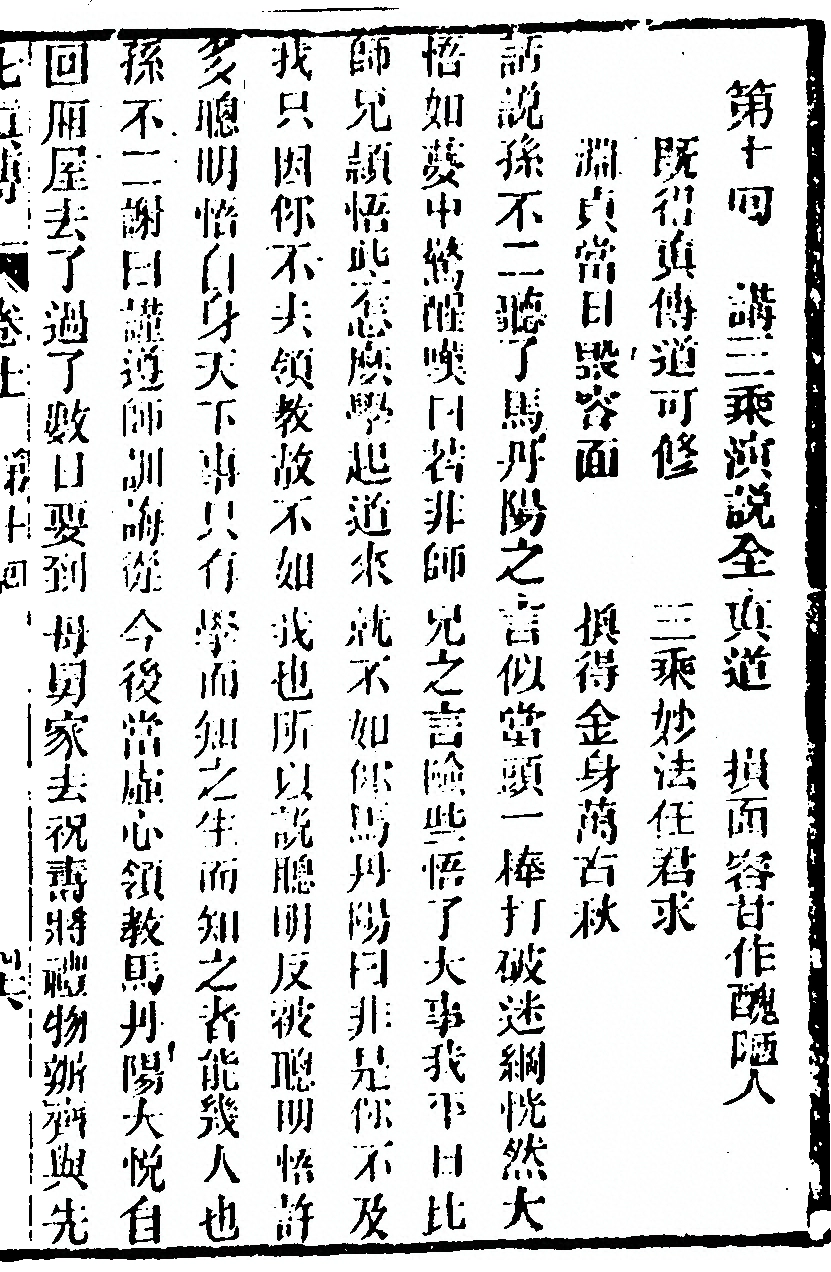 第十回　講三乘演說全真道　損面容甘作醜陋人
既得真傳道可修　三乘妙法任君求
淵貞當日毀容面　換得金身萬古秋
話說孫不二聽了馬丹陽之言似當頭一棒打破迷網恍然大
悟如夢中驚醒嘆曰若非師兄之言險些悟了大事我平日比
師兄穎悟些怎麽學起道來就不如你馬丹陽曰非是你不及
我只因你不去領教故不如我也所以說聰明反被聰明悟許
多聰明悟自身天下事只有學而知之生而知之者能幾人也
孫不二謝曰謹遵師訓誨從今後當虛心領教馬丹陽大悅自
回廂屋去了過了數日要到母舅家去祝壽將禮物辦齊與先
七真傳　卷上　第十回